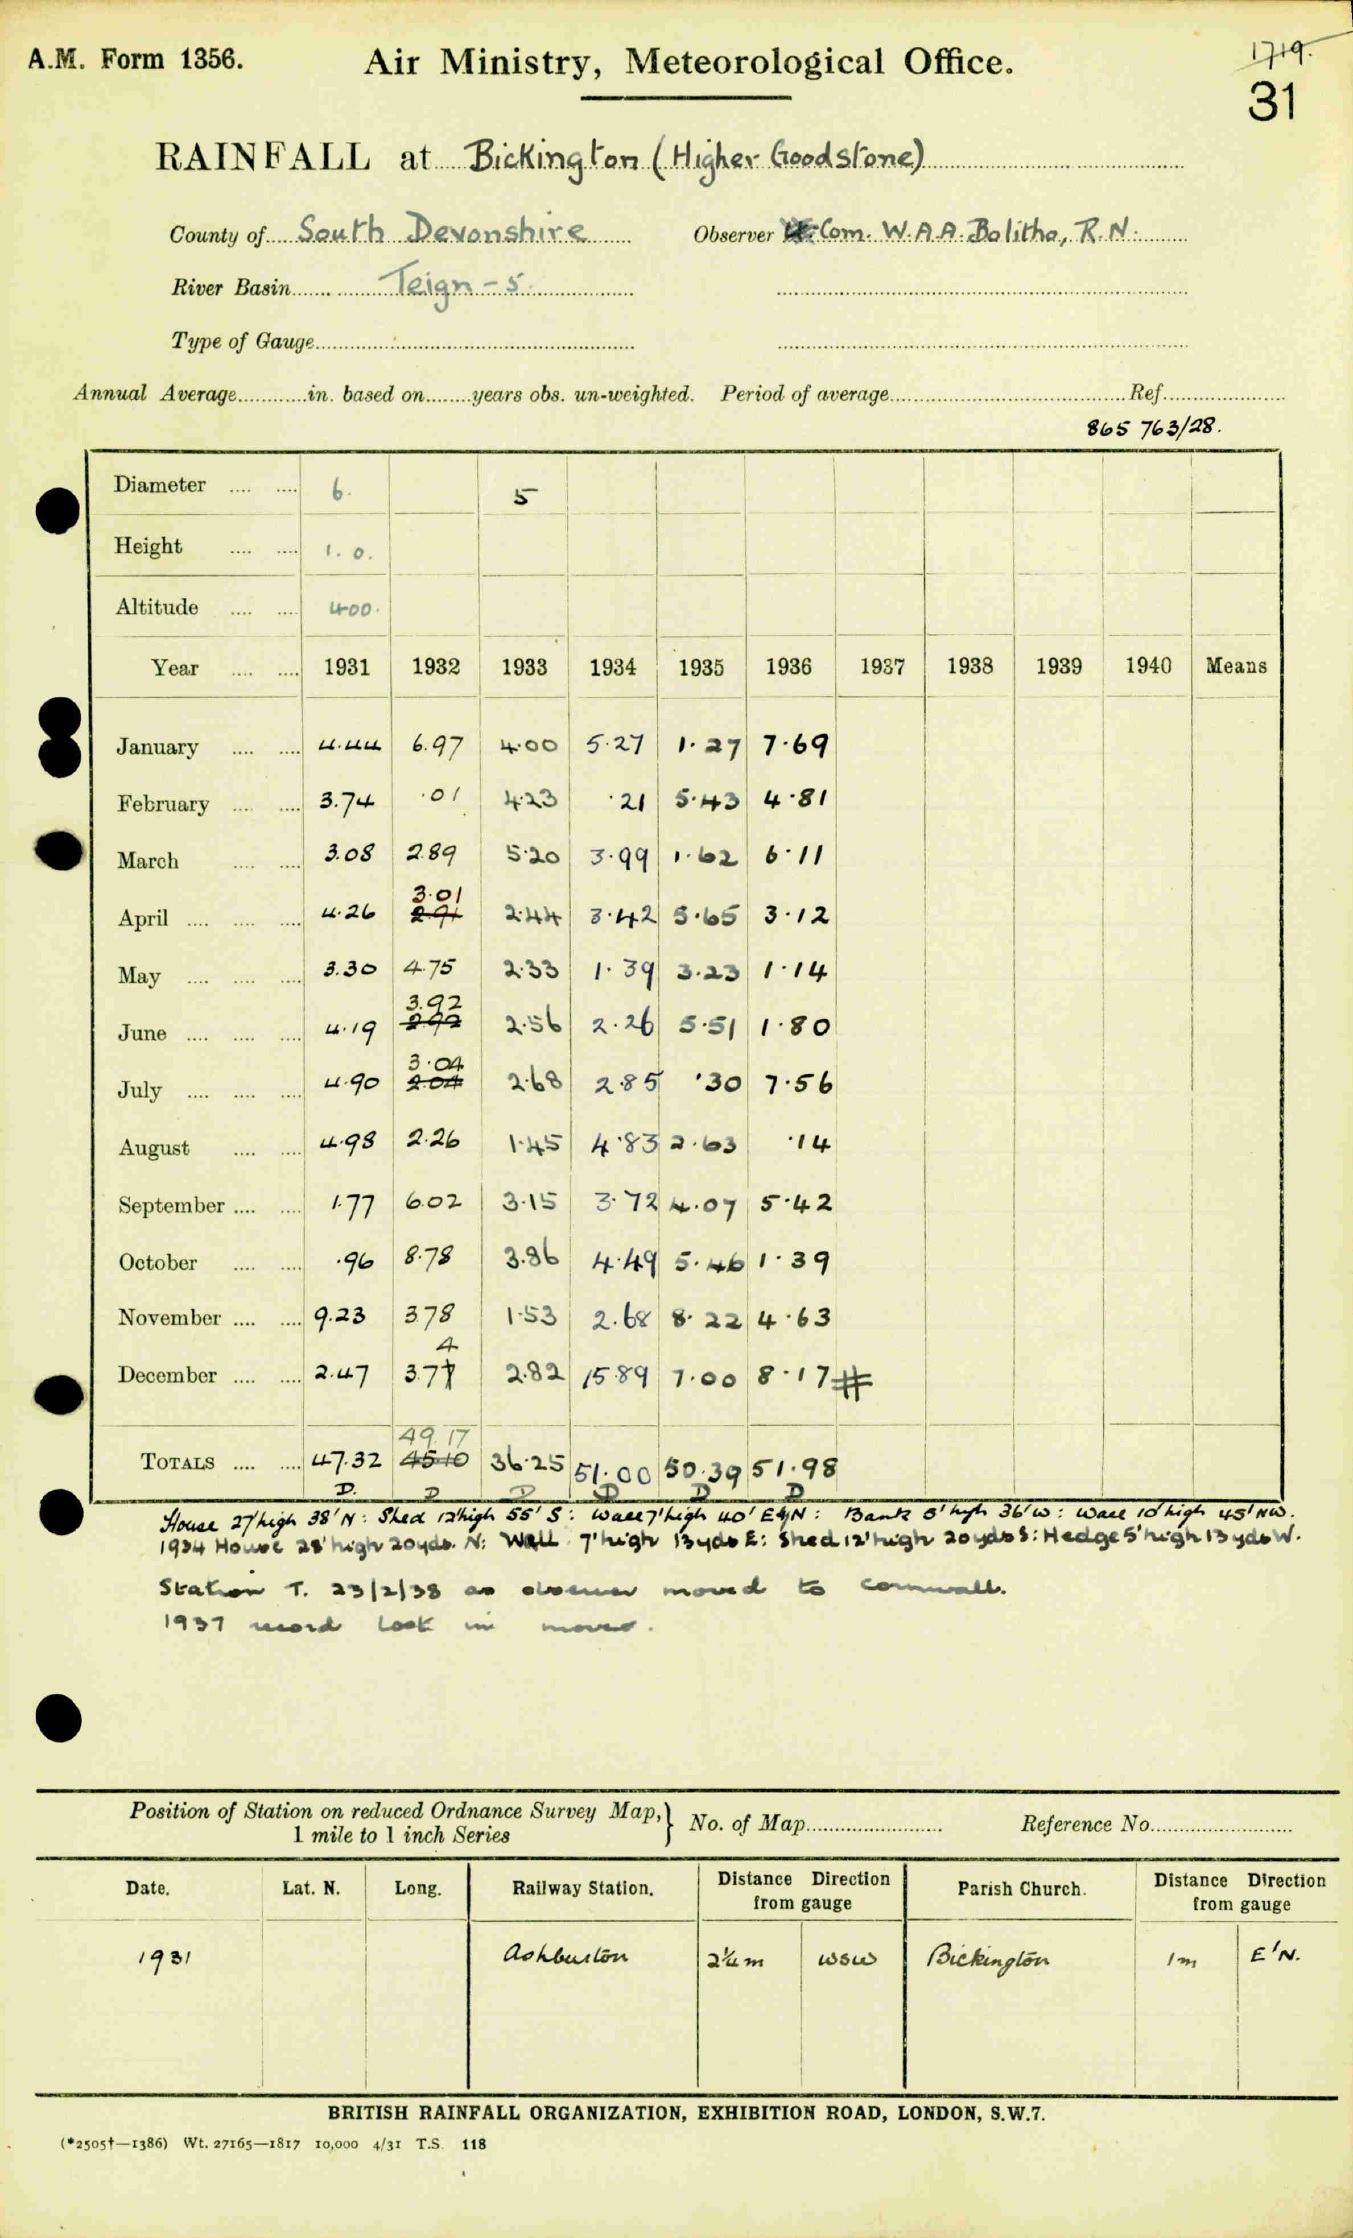 A.M. Form 1356. Air Ministry, Meteorological Office. 1719.
31
RAINFALL at Bickington (Higher Goodstone)
County of South Devonshire Observer Lt. Com. W.A.A. Bolitho, R.N.
River Basin Teign - 5
Type of Gauge
Annual Average in. based on years obs. un-weighted. Period of average Ref.
865 763/28.
Diameter 6. 5
Height 1.0.
Altitude 400.
Year 1931 1932 1933 1934 1935 1936 1937 1938 1939 1940 Means
January 4.44 6.97 4.00 5.27 1.27 7.69
February 3.74 .01 4.23 .21 5.43 4.81
March 3.08 2.89 5.20 3.99 1.62 6.11
3.01
April 4.26 2.91 2.44 3.42 5.65 3.12
May 3.30 4.75 2.33 1.39 3.23 1.14
3.92
June 4.19 2.92 2.56 2.26 5.51 1.80
3.04
July 4.90 2.04 2.68 2.85 .30 7.56
August 4.98 2.26 1.45 4.83 2.63 .14
September 1.77 6.02 3.15 3.72 4.07 5.42
October .96 8.78 3.86 4.49 5.46 1.39
November 9.23 3.78 1.53 2.68 8.22 4.63
4
December 2.47 3.77 2.82 15.89 7.00 8.17 #
49.17
TOTALS 47.32 45.10 36.25 51.00 50.39 51.98
D. D D D D D
House 27' high 38' N: Shed 12' high 55' S: Wall 7' high 40' E & N: Bank 5' high 36' W: Wall 10' high 45' NW.
1934 House 28' high 20yds. N: Wall 7' high 13yds E: Shed 12' high 20yds S: Hedge 5' high 13yds W.
Station T. 23/2/38 as observer moved to Cornwall.
1937 record lost in move.
Position of Station on reduced Ordnance Survey Map, } No. of Map Reference No.
1 mile to 1 inch Series
Date. Lat. N. Long. Railway Station. Distance Direction from gauge Parish Church. Distance Direction from gauge
1931 Ashburton 2¼m WSW Bickington 1m E'N.
BRITISH RAINFALL ORGANIZATION, EXHIBITION ROAD, LONDON, S.W.7.
(*2505†—1386) Wt. 27165—1817 10,000 4/31 T.S. 118